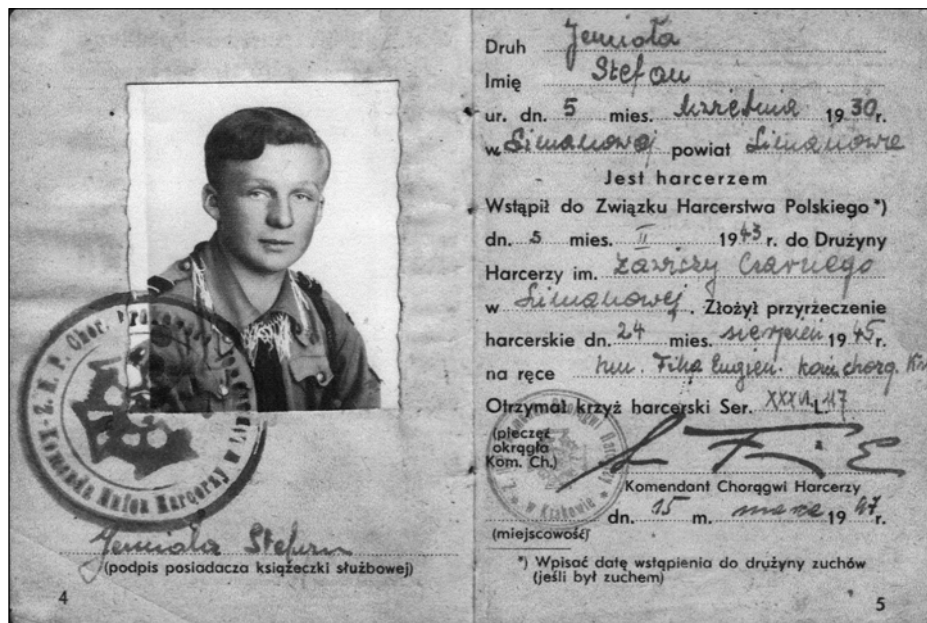 Jemioła Stefan
(podpis posiadacza książeczki służbowej)
4
Druh Jemioła
Imię Stefan
ur. dn. 5 mies. września 1930 r.
w Limanowej powiat Limanowa
Jest harcerzem
Wstąpił do Związku Harcerstwa Polskiego *)
dn. 5 mies. II 1943 r. do Drużyny
Harcerzy im. Zawiszy Czarnego
w Limanowej. Złożył przyrzeczenie
harcerskie dn. 24 mies. sierpień 1945 r.
na ręce hm. Fika Eugien. kom. chorg.
Otrzymał krzyż harcerski Ser. L. 117
(pieczęć
okrągła
Kom. Ch.)
w Krakowie
Komendant Chorągwi Harcerzy
dn. 15 m. marca 1947 r.
(miejscowość)
*) Wpisać datę wstąpienia do drużyny zuchów
(jeśli był zuchem)
5